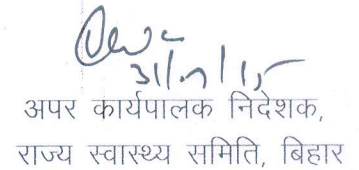 अपर कार्यपालक निदेशक,
राज्य स्वास्थ्य समिति, बिहार